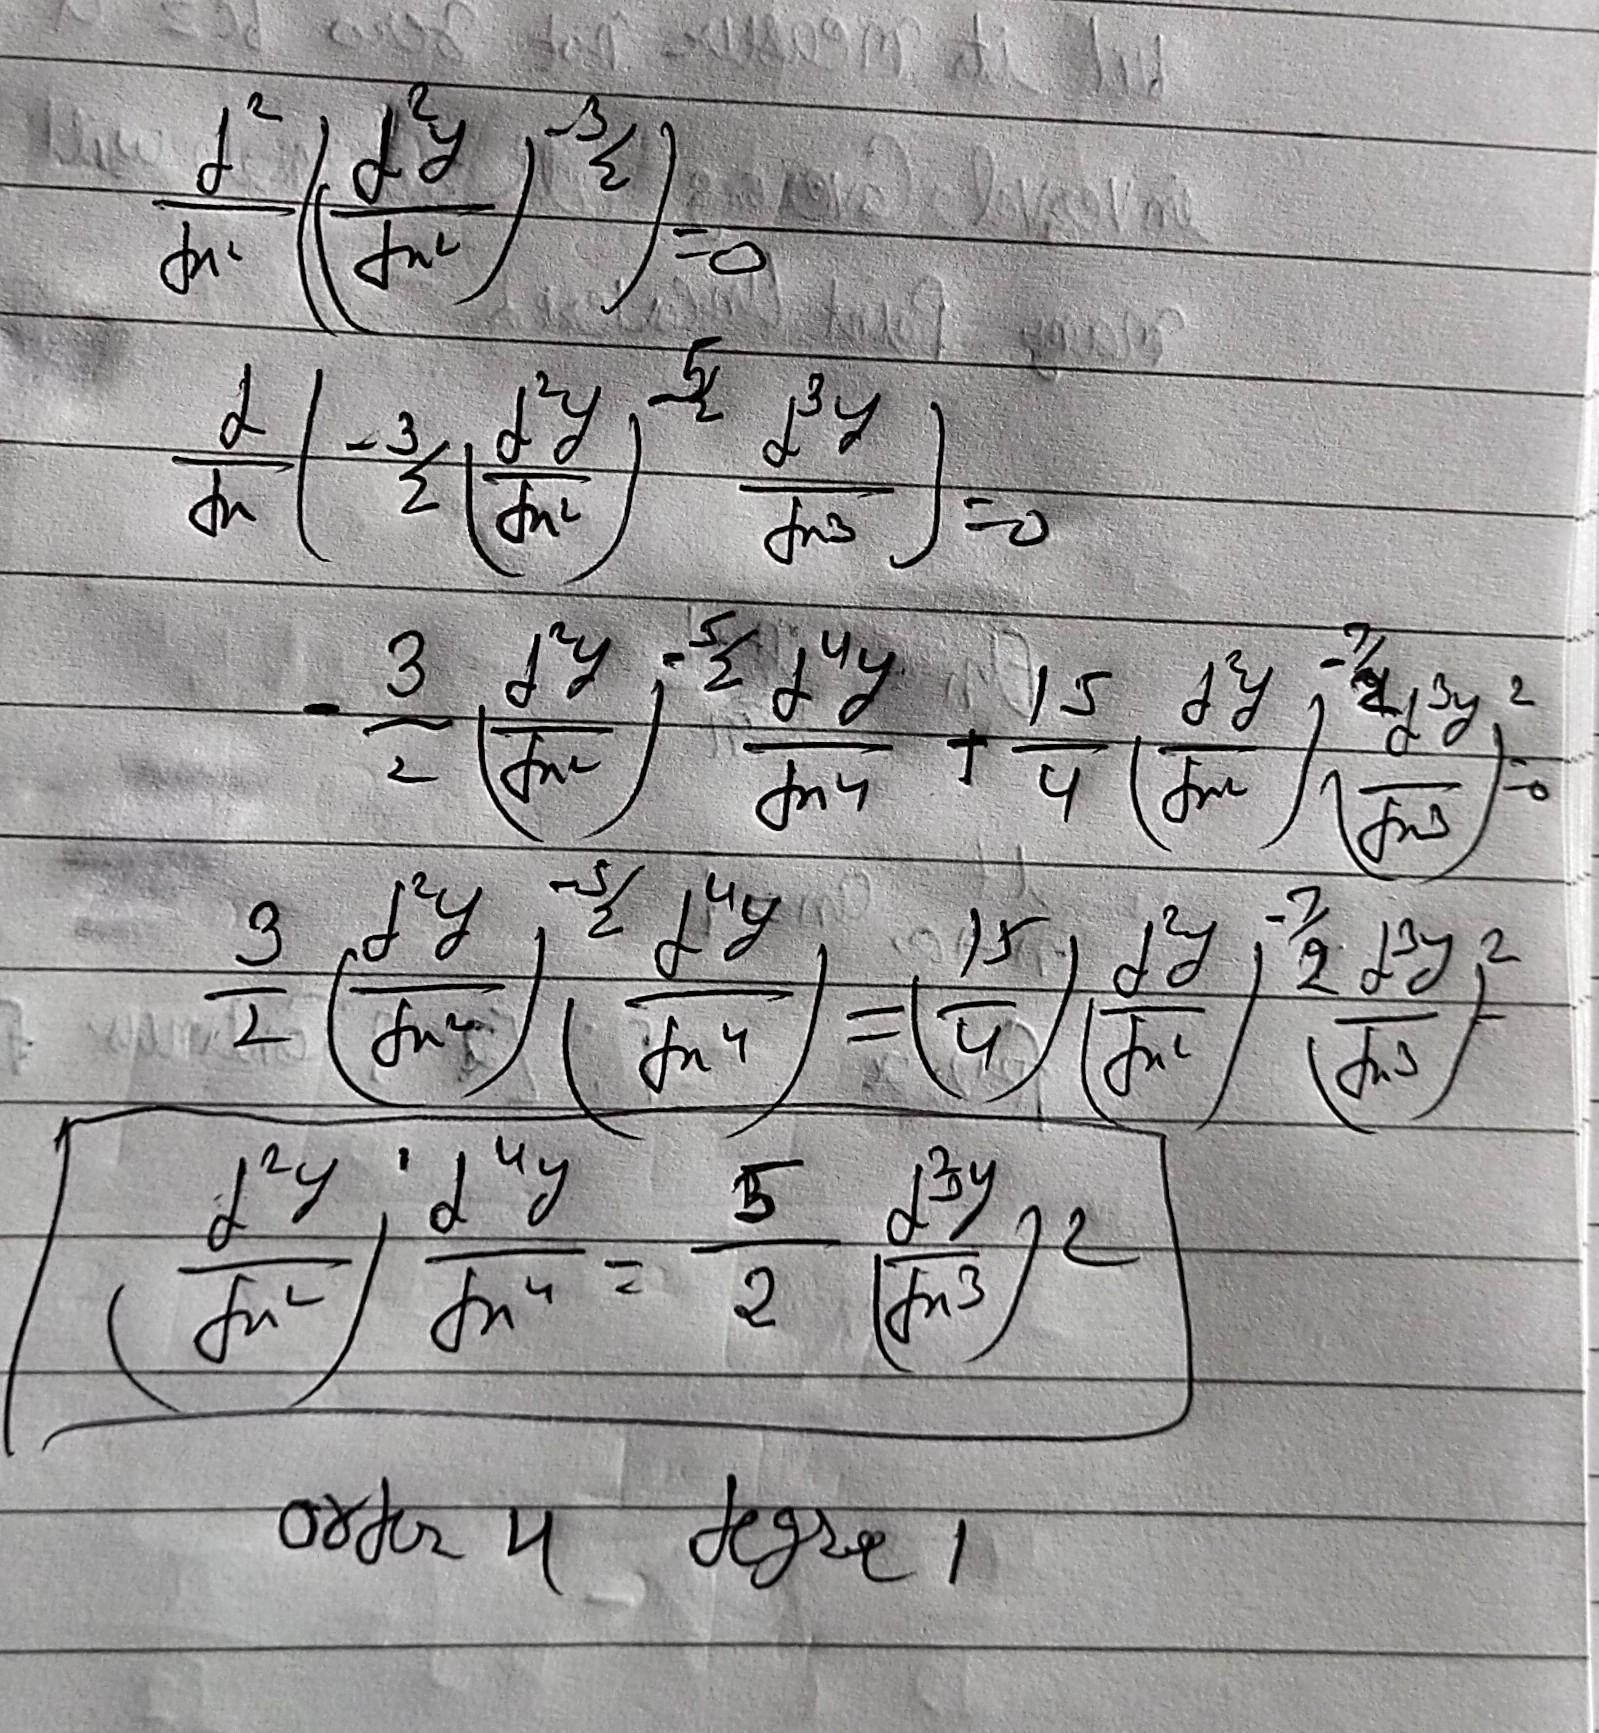 d²/dx² ((d²y/dx²)^(-3/2)) = 0
d/dx (-3/2 (d²y/dx²)^(-5/2) d³y/dx³) = 0
- 3/2 (d²y/dx²)^(-5/2) d⁴y/dx⁴ + 15/4 (d²y/dx²)^(-7/2) (d³y/dx³)² = 0
3/2 (d²y/dx²)^(-5/2) (d⁴y/dx⁴) = (15/4) (d²y/dx²)^(-7/2) (d³y/dx³)²
(d²y/dx²) · d⁴y/dx⁴ = 5/2 (d³y/dx³)²
order 4 degree 1